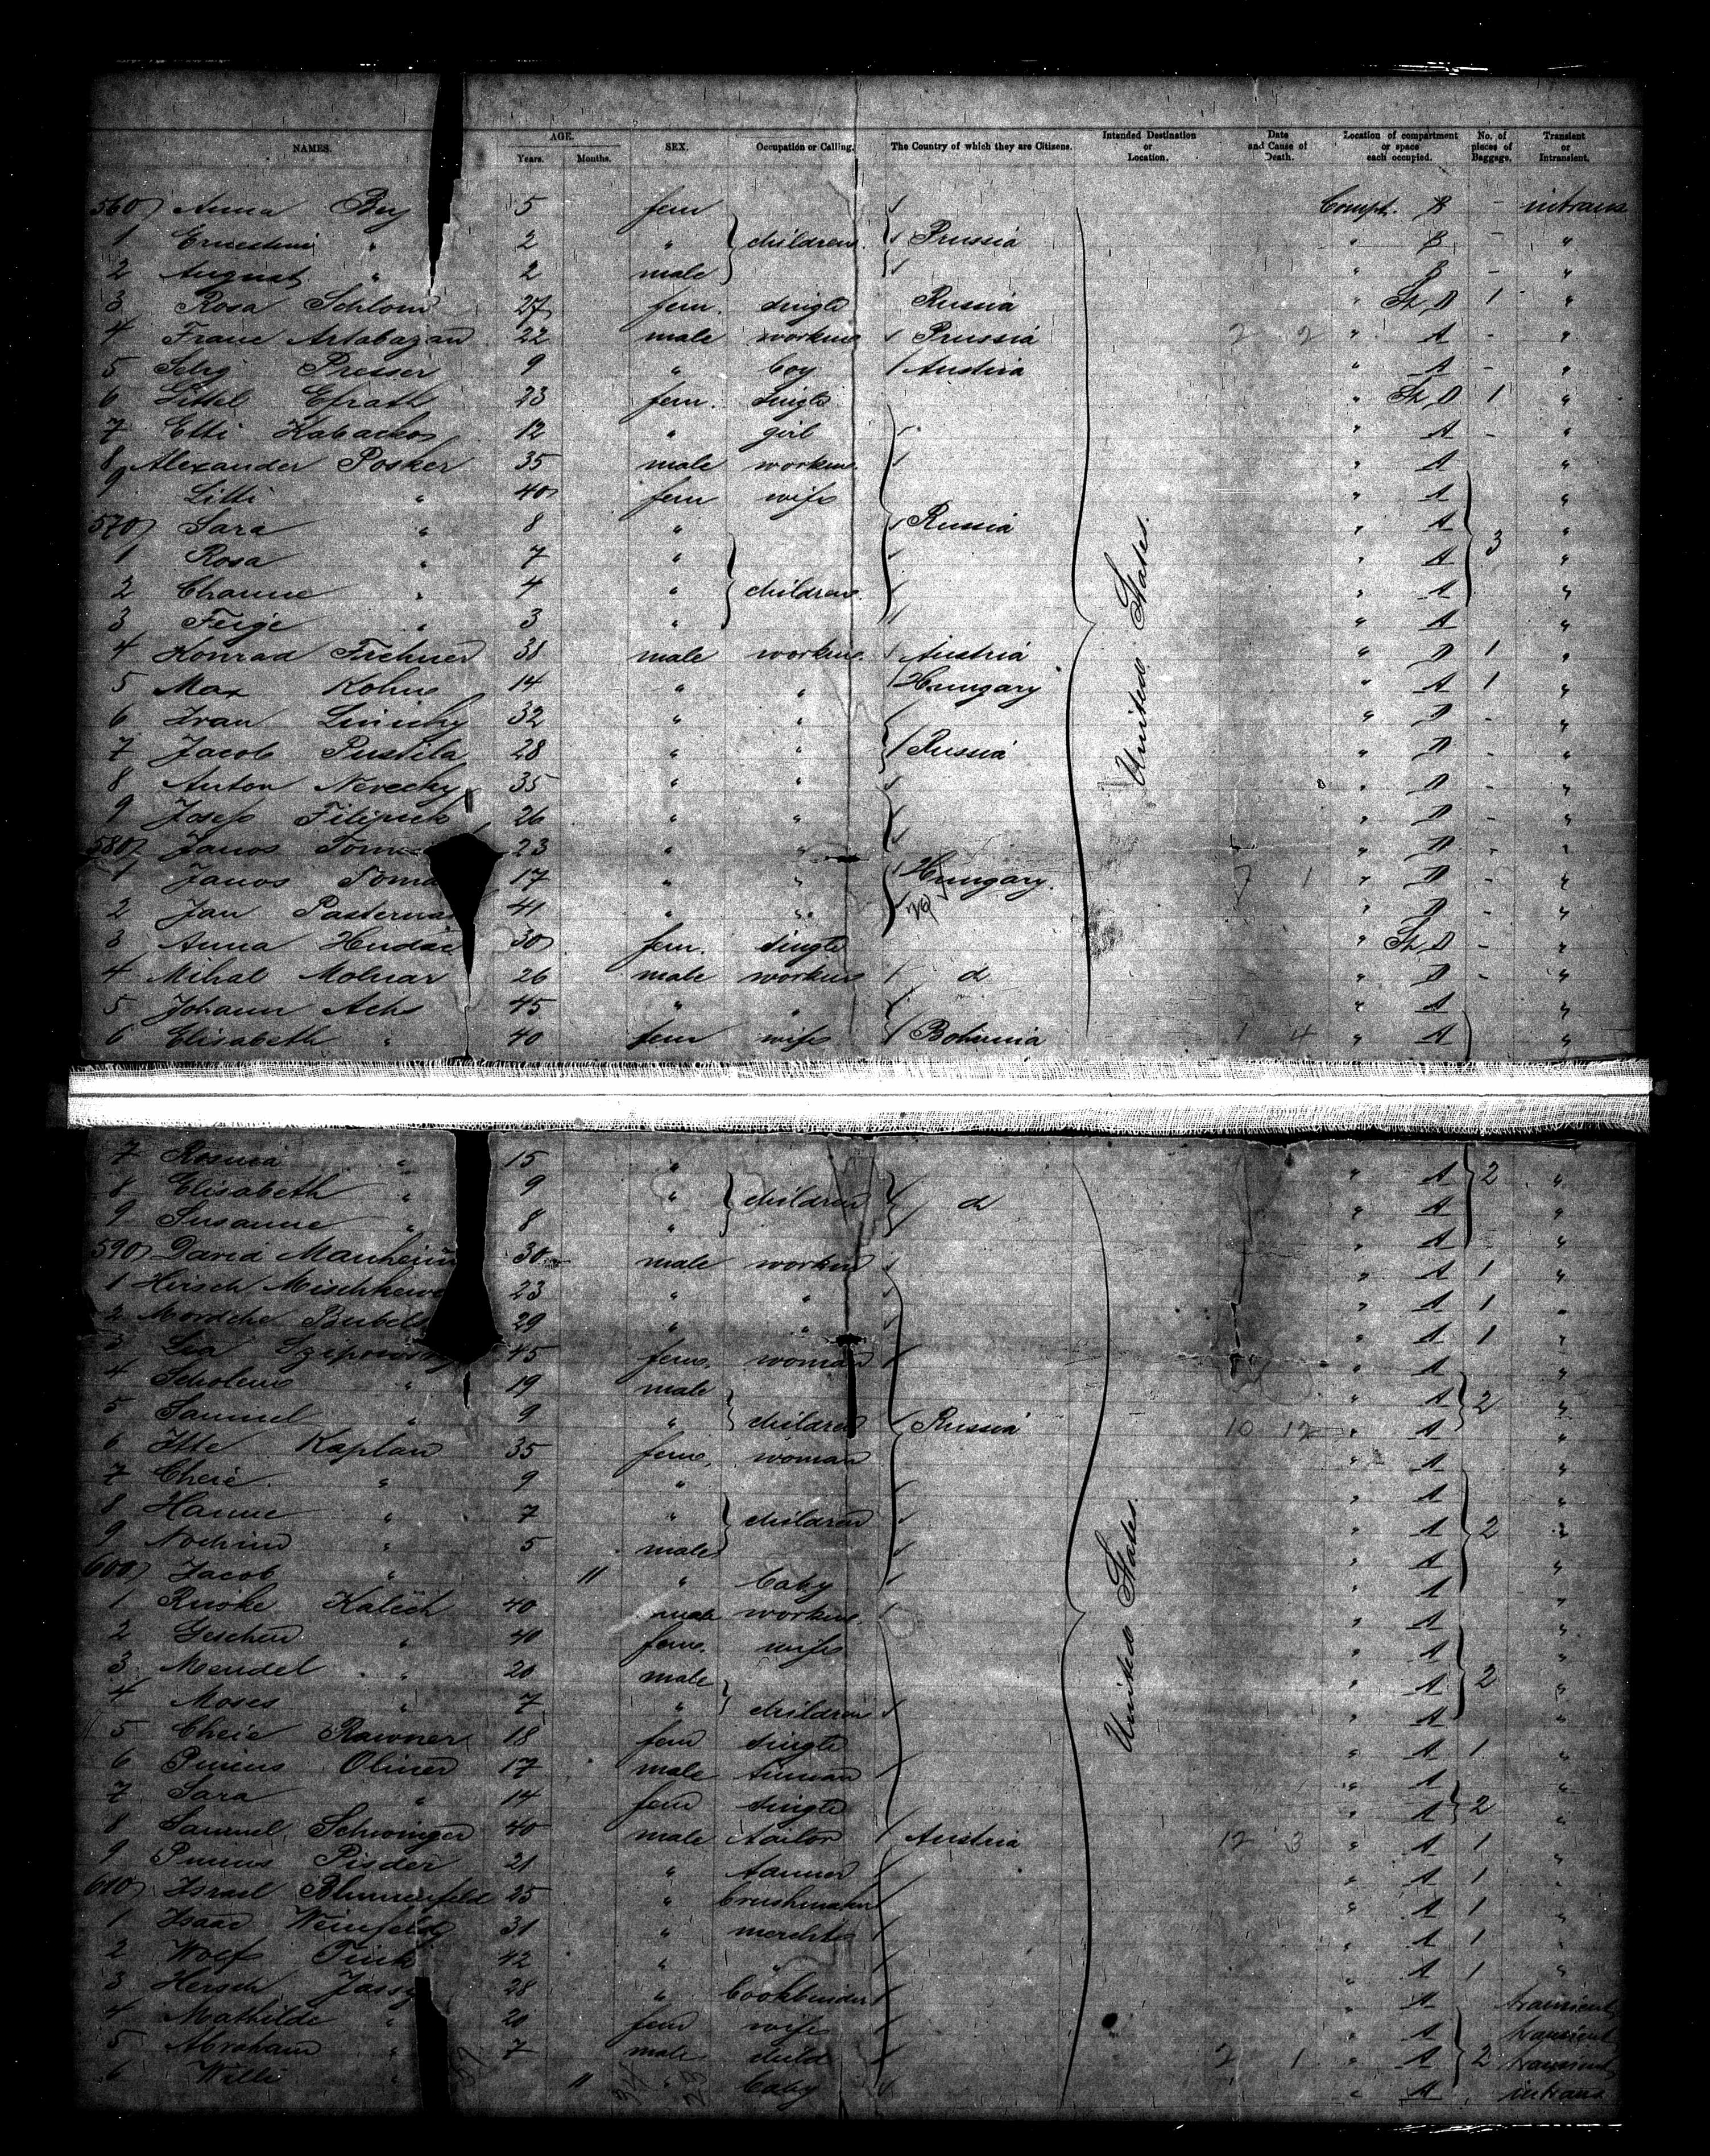 NAMES. AGE. Years. Months. SEX. Occupation or Calling. The Country of which they are Citizens. Intended Destination or Location. Date and Cause of Death. Location of compartment or space each occupied. No. of pieces of Baggage. Transient or Intransient.
560) Anna Bey 5 fem Compt. B - intrans
1 Ernestine " 2 " children Prussia " B - "
2 August " 2 male " B - "
3 Rosa Schlom 27 fem. single Russia " St. D 1 "
4 Franc Artabazan 22 male workm Prussia 2 2 " A - "
5 Selig Presser 9 " boy Austria " A - "
6 Efrath 23 fem. single " St. D 1 "
7 Etti 12 " girl " A - "
8 Alexander Posker 35 male workm. " A "
9 Litti " 40 fem wife " A "
570) Sara " 8 " Russia " A "
1 Rosa " 7 " " A 3 "
2 Channe " 4 " children " A "
3 Feige " 3 " " A "
4 Konrad 38 male workm. Austria " D 1 "
5 Max Kohne 14 " " Hungary " A 1 "
6 Ivan 32 " " " D - "
7 Jacob Pustila 28 " " Russia " D - "
8 Anton 35 " " " D - "
9 Josef 26 " " " D - "
580) Janos 23 " " " D - "
1 Janos 17 " " Hungary. 7 1 " D - "
2 Jan 41 " " " D - "
3 Anna 30 fem. single " St. D - "
4 Mihal Molnar 26 male workm d " D - "
5 Johann Ach 45 " " " A "
6 Elisabeth " 40 fem wife Bohemia 1 4 " A "
United States.
7 Rosina " 15 " " A 2 "
8 Elisabeth " 9 " children d " A "
9 Susanne " 8 " " A "
590) David Manheim 30 male workm " A 1 "
1 Hersch 23 " " " A 1 "
2 Mordche 29 " " " A 1 "
3 Lea 45 fem. woman " A "
4 Scholem " 19 male " A 2 "
5 Samuel " 9 " children Russia 10 12 " A "
6 Itte Kaplan 35 fem. woman " A "
7 Cheie " 9 " " A "
8 Hanne " 7 " children " A 2 "
9 Nochim " 5 male " A "
600) Jacob " 11 " baby " A "
1 Kalech 40 male workm. " A "
2 " 40 fem. wife " A "
3 Mendel " 20 male " A 2 "
4 Moses " 7 " children " A "
5 Cheie Rawner 18 fem single " A 1 "
6 Pincus Oliner 17 male " A "
7 Sara " 14 fem single " A 2 "
8 Samuel Schwinger 40 male tailor Austria 12 3 " A 1 "
9 Pincus Pisder 21 " tanner " A 1 "
610) Israel Blumenfeld 25 " brushmaker " A 1 "
1 Isaac Weinfeld 31 " " A 1 "
2 Wolf Fink 42 " " " A 1 "
3 Hersch Jassy 28 " bookbinder " A transient
4 Mathilde " 20 fem wife " A transient
5 Abraham " 7 male child 2 1 " A 2 transient
6 Willi " 11 " baby " A intrans
United States.